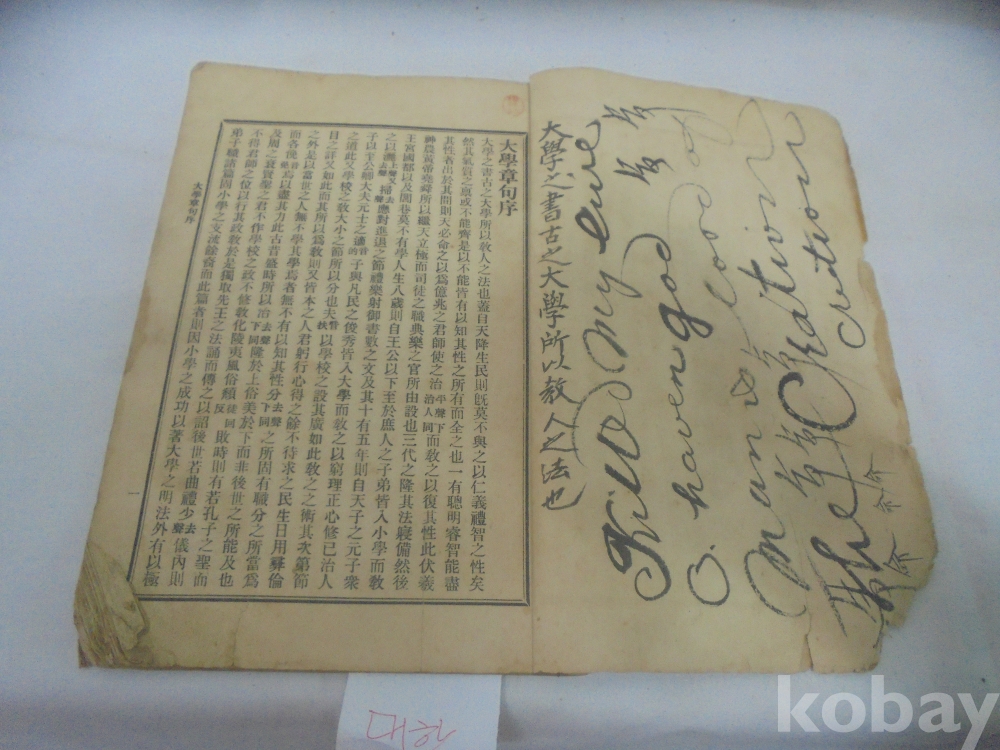 大學之書古之大學所以教人之法也
O. haven god
Creation
creition
大學章句序
大學之書古之大學所以敎人之法也蓋自天降生民則旣莫不與之以仁義禮智之性矣
然其氣質之稟或不能齊是以不能皆有以知其性之所有而全之也一有聰明睿智能盡
其性者出於其間則天必命之以爲億兆之君師使之治平聲下治人同而敎之以復其性此伏羲
神農黃帝堯舜所以繼天立極而司徒之職典樂之官所由設也三代之隆其法寢備然後
王宮國都以及閭巷莫不有學人生八歲則自王公以下至於庶人之子弟皆入小學而敎
之以灑上聲又去聲掃去聲應對進退之節禮樂射御書數之文及其十有五年則自天子之元子衆
子以至公卿大夫元士之適音的子與凡民之俊秀皆入大學而敎之以窮理正心修己治人
之道此又學校之敎大小之節所以分也夫音扶以學校之設其廣如此敎之之術其次第節
目之詳又如此而其所以爲敎則又皆本之人君躬行心得之餘不待求之民生日用彛倫
之外是以當世之人無不學其學焉者無不有以知其性分去聲下同之所固有職分之所當爲
而各俛音免焉以盡其力此古昔盛時所以治去聲下同隆於上俗美於下而非後世之所能及也
及周之衰賢聖之君不作學校之政不修敎化陵夷風俗頹徒回反敗時則有若孔子之聖而
不得君師之位以行其政敎於是獨取先王之法誦而傳之以詔後世若曲禮少去聲儀內則
弟子職諸篇固小學之支流餘裔而此篇者則因小學之成功以著大學之明法外有以極
大學章句序
一
대학
kobay